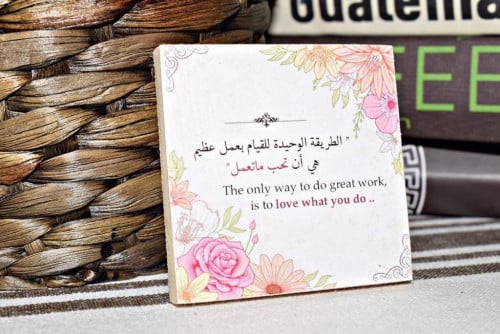 Guatema
FEE
" الطريقة الوحيدة للقيام بعمل عظيم
هي أن تحب ماتعمل"
The only way to do great work,
is to love what you do ..